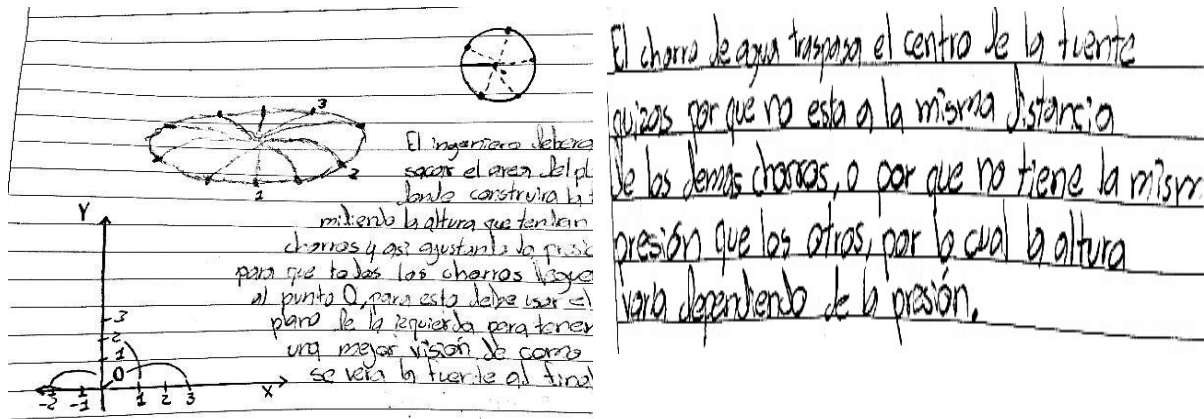 3
2
1
El ingeniero debera
sacar el area del pl
donde construira la f
midiendo la altura que tendran
chorros y asi ajustando la presio
para que todos los chorros llegue
al punto 0, para esto debe usar el
plano de la izquierda para tener
una mejor visión de como
se vera la fuente al final
Y
3
2
1
0
-2 -1 1 2 3 X
El chorro de agua traspasa el centro de la fuente
quizas por que no esta a la misma distancia
de los demás chorros, o por que no tiene la mism
presión que los otros, por lo cual la altura
varia dependiendo de la presión.